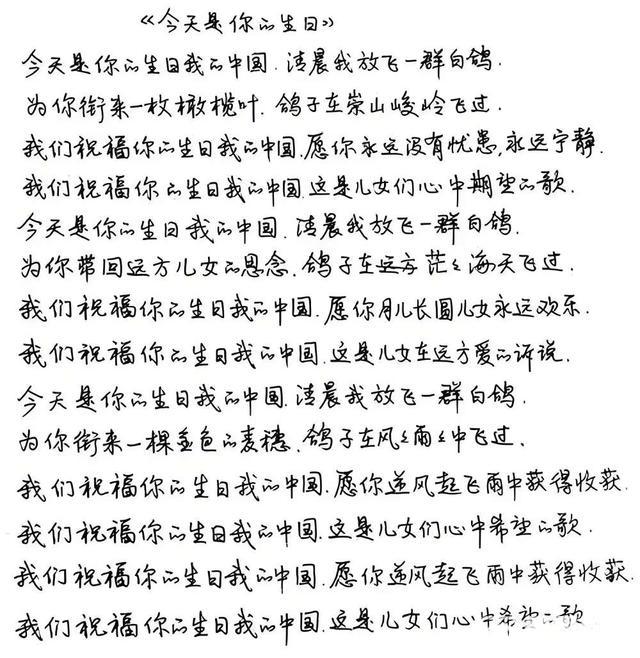 《今天是你的生日》
今天是你的生日我的中国.清晨我放飞一群白鸽.
为你衔来一枚橄榄叶.鸽子在崇山峻岭飞过.
我们祝福你的生日我的中国.愿你永远没有忧患,永远宁静.
我们祝福你的生日我的中国.这是儿女们心中期望的歌.
今天是你的生日我的中国.清晨我放飞一群白鸽.
为你带回远方儿女的思念.鸽子在远方茫々海天飞过.
我们祝福你的生日我的中国.愿你月儿长圆儿女永远欢乐.
我们祝福你的生日我的中国.这是儿女在远方爱的诉说.
今天是你的生日我的中国.清晨我放飞一群白鸽.
为你衔来一棵金色的麦穗.鸽子在风々雨々中飞过.
我们祝福你的生日我的中国.愿你逆风起飞雨中获得收获.
我们祝福你的生日我的中国.这是儿女们心中希望的歌.
我们祝福你的生日我的中国.愿你逆风起飞雨中获得收获.
我们祝福你的生日我的中国.这是儿女们心中希望的歌